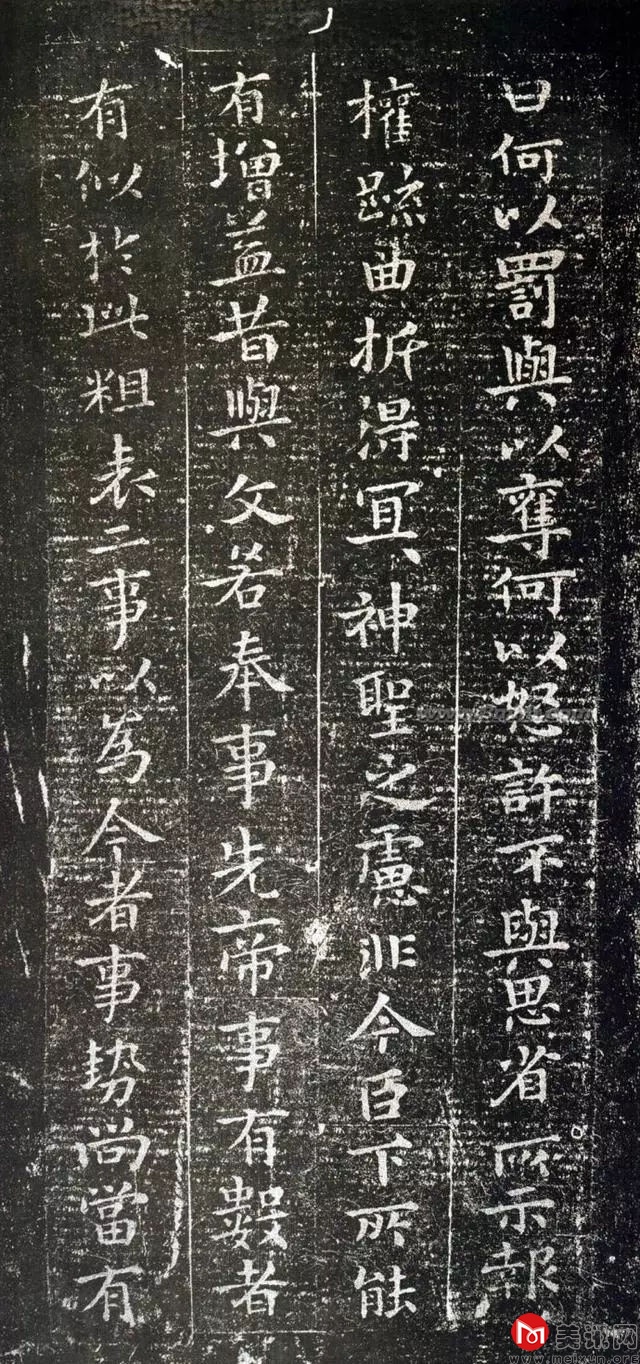 曰何以罰與以奪何以怒許不與思省所示報
權疏曲折得冝神聖之慮非今臣下所能
有增益昔與文若奉事先帝事有數者
有似於此粗表二事以為今者事勢尚當有
美讯网
www.meixun.org